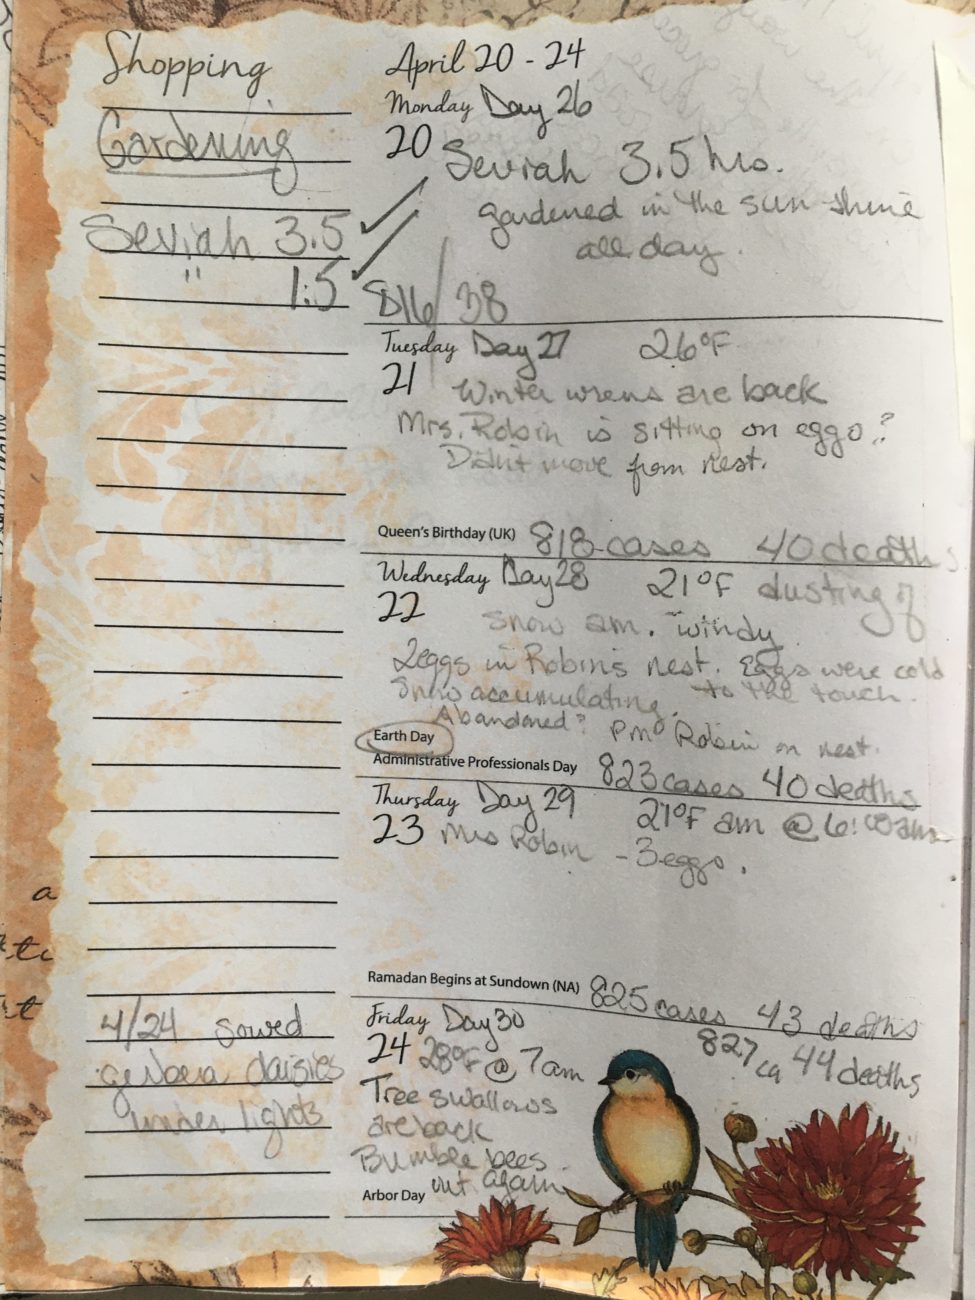 Shopping
Gardening
Seviah 3.5
" 1.5
4/24 sowed
gerbera daisies
under lights
April 20 - 24
Monday Day 26
20 Seviah 3.5 hrs.
gardened in the sun shine
all day.
816/38
Tuesday Day 27 26°F
21 Winter wrens are back
Mrs. Robin is sitting on eggs?
Didn't move from nest.
Queen's Birthday (UK) 818 cases 40 deaths
Wednesday Day 28 21°F dusting of
22 snow am. windy
2 eggs in Robin's nest. Eggs were cold
Snow accumulating. to the touch.
Abandoned? PM Robin on nest.
Earth Day
Administrative Professionals Day 823 cases 40 deaths
Thursday Day 29 21°F am @ 6:00 am
23 Mrs Robin - 3 eggs.
Ramadan Begins at Sundown (NA) 825 cases 43 deaths
Friday Day 30 827 ca 44 deaths
24 28°F @ 7am
Tree swallows
are back
Bumble bees
out again
Arbor Day